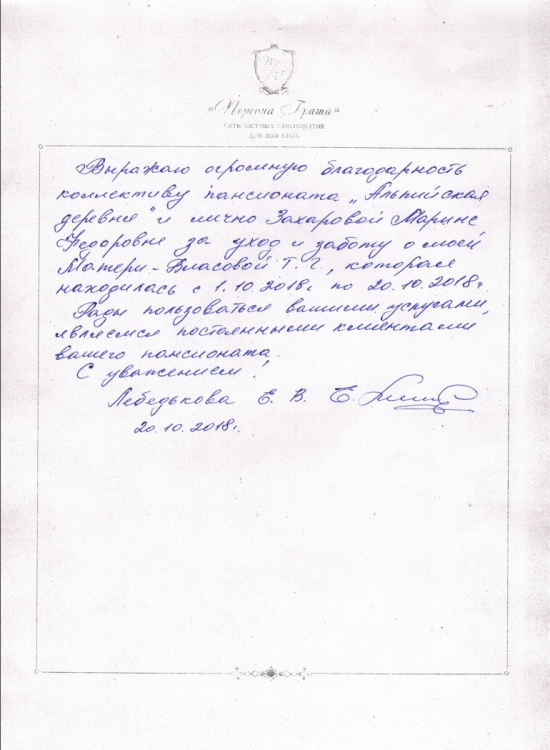 «Персона Грата»
Сеть частных пансионатов
для пожилых
Выражаю огромную благодарность
коллективу пансионата „Альпийская
деревня" и лично Захаровой Марине
Федоровне за уход и заботу о моей
Матери - Власовой Т. Г., которая
находилась с 1.10.2018г по 20.10.2018г.
Рады пользоваться вашими услугами,
являемся постоянными клиентами
вашего пансионата.
С уважением!
Лебедькова Е. В.
20.10.2018г.